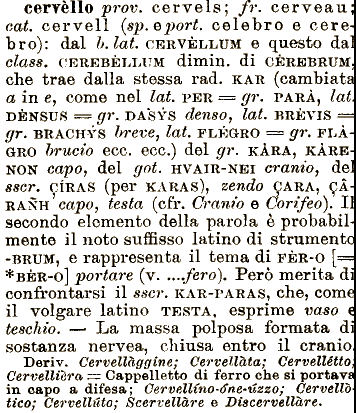 cervèllo prov. cervels; fr. cerveau;
cat. cervell (sp. e port. celebro e cere-
bro): dal b. lat. CERVÈLLUM e questo dal
class. CEREBÈLLUM dimin. di CÈREBRUM,
che trae dalla stessa rad. KAR (cambiata
a in e, come nel lat. PER = gr. PARÀ, lat.
DÈNSUS = gr. DASỲS denso, lat. BRÈVIS =
gr. BRACHỲS breve, lat. FLÉGRO = gr. FLÁ-
GRO brucio ecc. ecc.) del gr. KÀRA, KÀRE-
NON capo, del got. HVAIR-NEI cranio, del
sscr. ÇÍRAS (per KARAS), zendo ÇARA, ÇÂ-
RAÑH capo, testa (cfr. Cranio e Corifeo). Il
secondo elemento della parola è probabil-
mente il noto suffisso latino di strumento
-BRUM, e rappresenta il tema di FÈR-O [=
*BÈR-O] portare (v. ....fero). Però merita di
confrontarsi il sscr. KAR-PARAS, che, come
il volgare latino TESTA, esprime vaso e
teschio. — La massa polposa formata di
sostanza nervea, chiusa entro il cranio.
Deriv. Cervellàggine; Cervellàta; Cervellétto;
Cervellièra = Cappelletto di ferro che si portava
in capo a difesa; Cervellíno-óne-úzzo; Cervellò-
tico; Cervellúto; Scervellàre e Discervellàre.